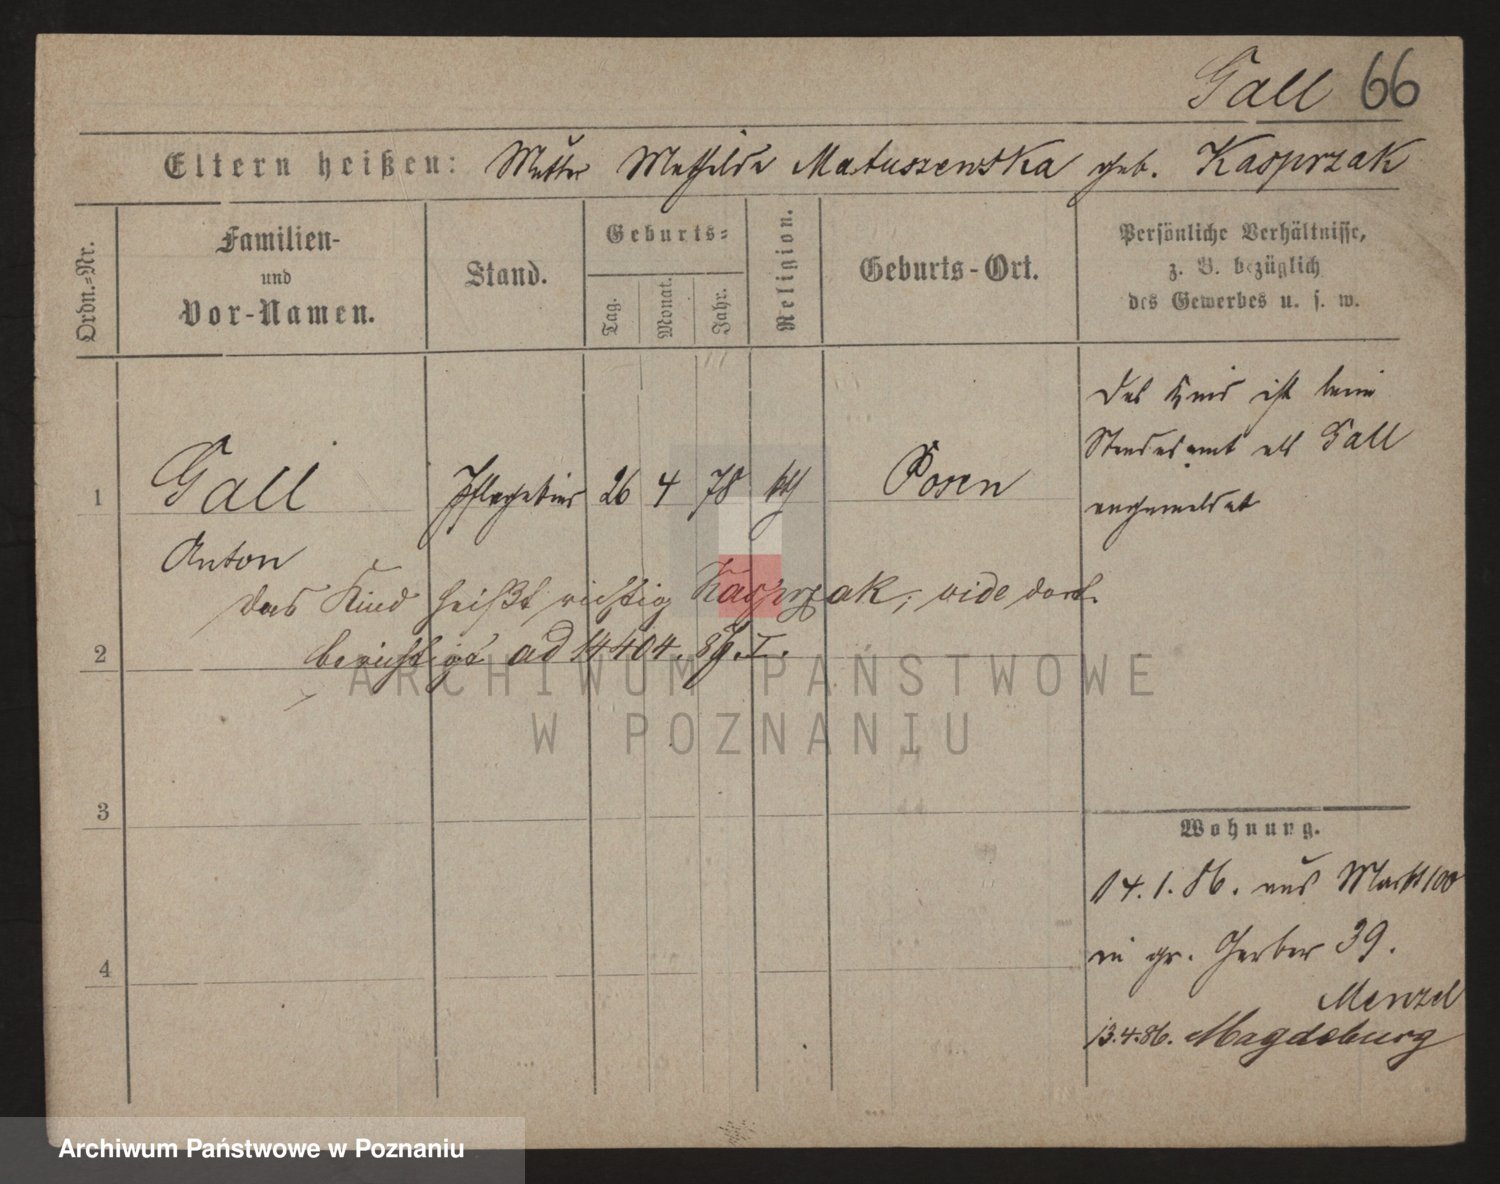 Gall 66
Eltern heißen: Mutter Mathilde Matuszewska geb. Kasprzak
Ordn.-Nr.
Familien-
und
Vor-Namen.
Stand.
Geburts-
Tag.
Monat.
Jahr.
Religion.
Geburts-Ort.
Persönliche Verhältnisse,
z. B. bezüglich
des Gewerbes u. s. w.
1 Gall Pflegekind 26 4 78 kth Posen
Anton
Das Kind ist beim
Standesamt als Gall
angemeldet
das Kind heißt richtig Kasprzak, vide dort.
berichtigt ad 14404. 87. I.
2
3
4
Wohnung.
14.1.86. aus Markt 100
in gr. Gerber 39.
Menzel
13.4.86. Magdeburg
ARCHIWUM PAŃSTWOWE
W POZNANIU
Archiwum Państwowe w Poznaniu